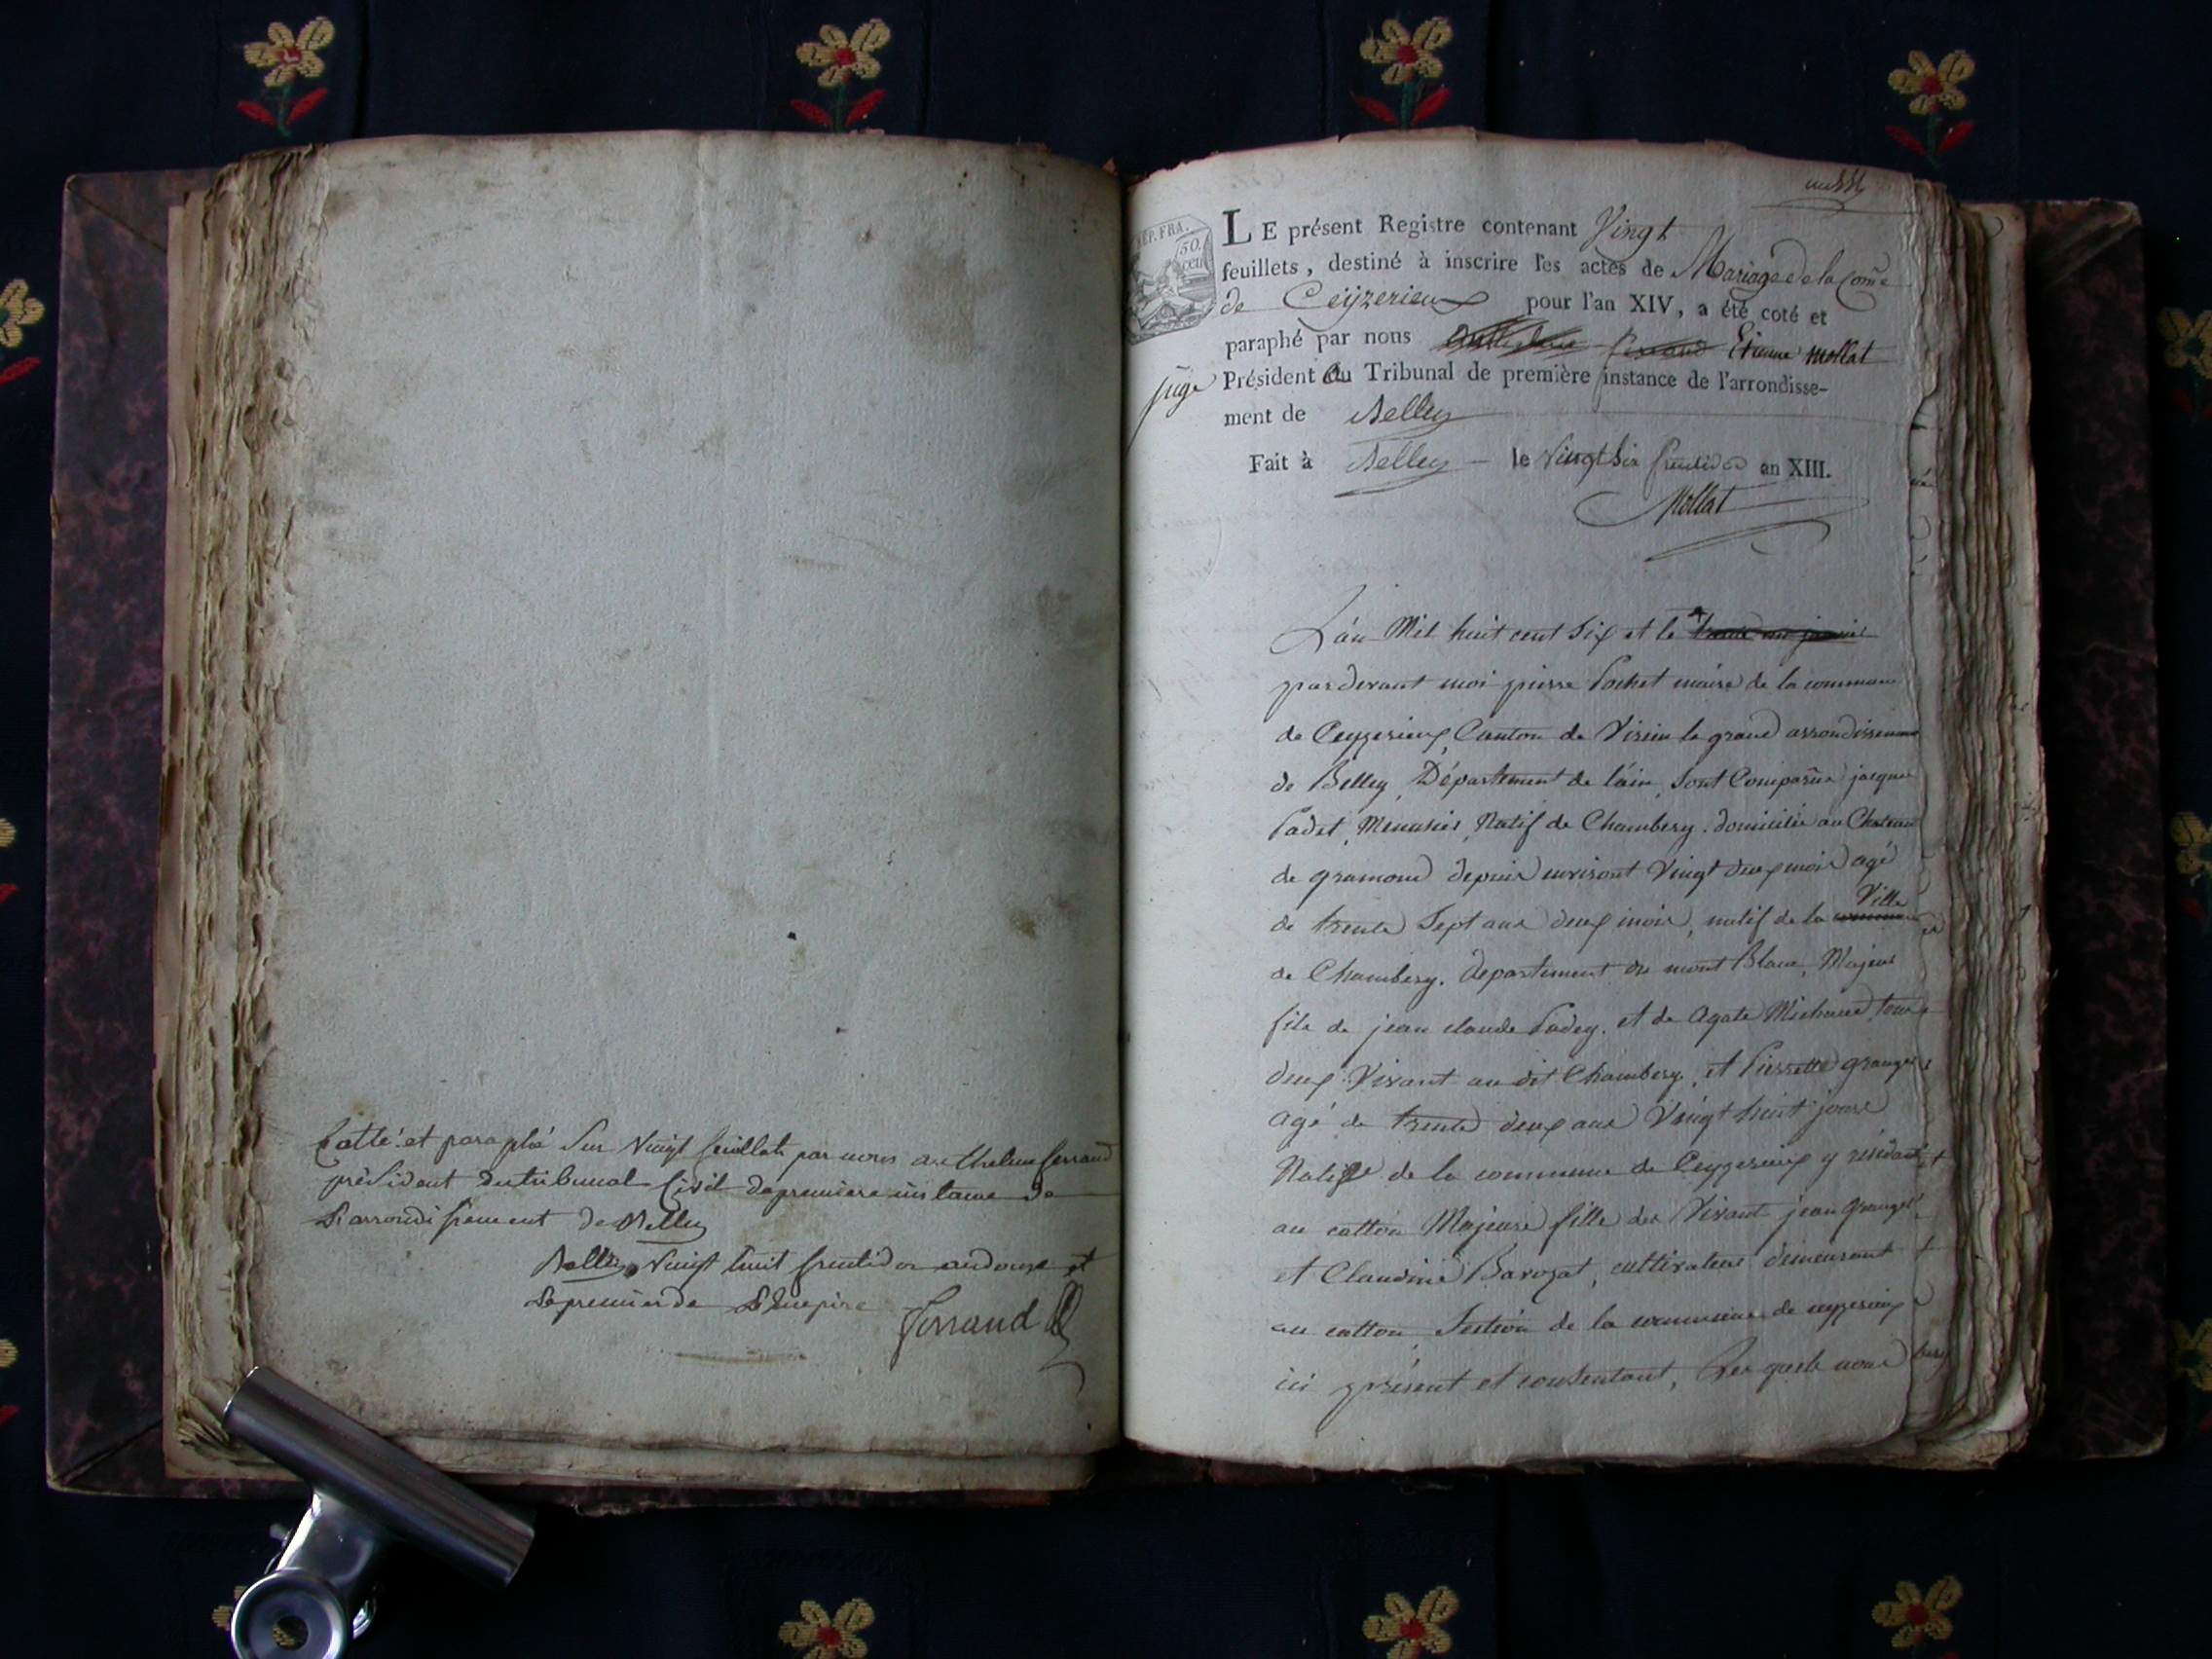 Cotté et paraphé sur Vingt feuillets par nous anthelme ferrand
président du tribunal Civil de premiere instance de
L'arrondissement de Belley
Belley Vingt huit fructidor an douze et
Le premier de L'Empire
Ferrand
RÉP. FRA.
50.
cen
LE présent Registre contenant Vingt
feuillets, destiné à inscrire les actes de Mariage de la Com̄e
de Ceÿzerieux pour l'an XIV, a été coté et
paraphé par nous Etienne Mollat
juge Président au Tribunal de première instance de l'arrondisse-
ment de Belley
Fait à Belley le Vingt Six fructidor an XIII.
Mollat
L'an Mil huit cent Six et le
pardevant moi pierre Pochet maire de la commune
de Ceyzerieux, Canton de Virieu le grand arrondissement
de Belley, Département de l'ain, Sont Comparûs jacques
Padet, Menusier, Natif de Chambery. domicilié au Chateau
de gramond depuis environt Vingt deux mois agé
de trente Sept ans deux mois, natif de la Ville
de Chambery. departement du mont Blanc, Majeur
fils de jean claude Padey. et de Agate Michaud tous
deux Vivant au dit Chambery, et Pierrette granger
agé de trente deux ans Vingt huit jours
Native de la commune de Ceyzerieux y résidant
au catton Majeure fille des Vivant jean granger
et Claudine Barozat, cultivateur demeurant
au catton, Section de la commune de ceyzerieux
ici présent et consentant, Les quels nous